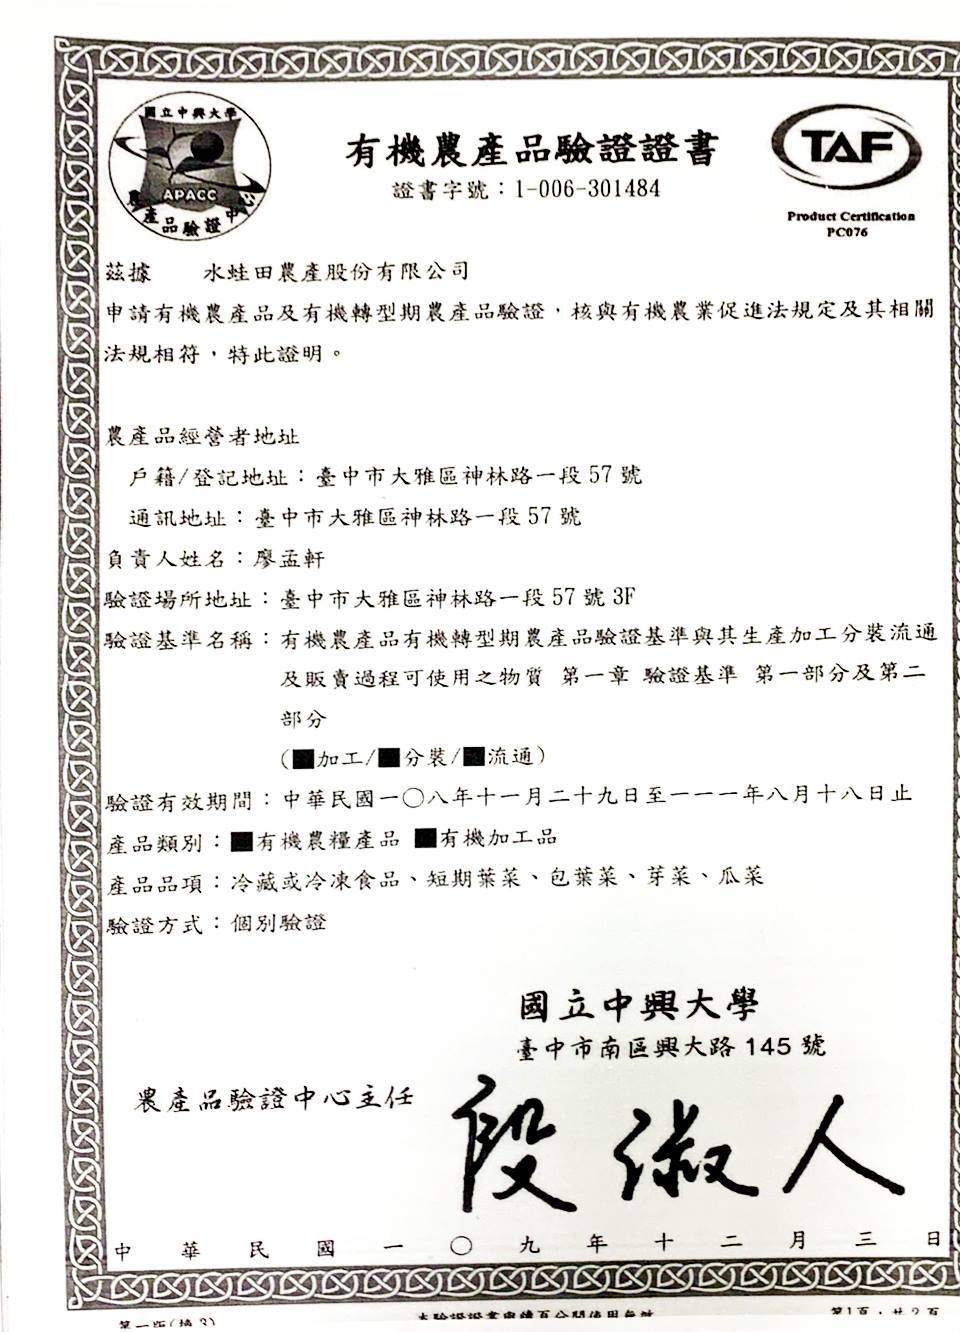 國立中興大學
APACC
農產品驗證中心
有機農產品驗證證書
證書字號：1-006-301484
TAF
Product Certification
PC076
茲據　　水蛙田農產股份有限公司
申請有機農產品及有機轉型期農產品驗證，核與有機農業促進法規定及其相關
法規相符，特此證明。
農產品經營者地址
戶籍/登記地址：臺中市大雅區神林路一段 57 號
通訊地址：臺中市大雅區神林路一段 57 號
負責人姓名：廖孟軒
驗證場所地址：臺中市大雅區神林路一段 57 號 3F
驗證基準名稱：有機農產品有機轉型期農產品驗證基準與其生產加工分裝流通
及販賣過程可使用之物質 第一章 驗證基準 第一部分及第二
部分
(■加工/■分裝/■流通)
驗證有效期間：中華民國一○八年十一月二十九日至一一一年八月十八日止
產品類別：■有機農糧產品 ■有機加工品
產品品項：冷藏或冷凍食品、短期葉菜、包葉菜、芽菜、瓜菜
驗證方式：個別驗證
國立中興大學
臺中市南區興大路 145 號
農產品驗證中心主任
段淑人
中華民國一○九年十二月三日
本驗證證書與續頁分開使用無效
第1頁，共2頁